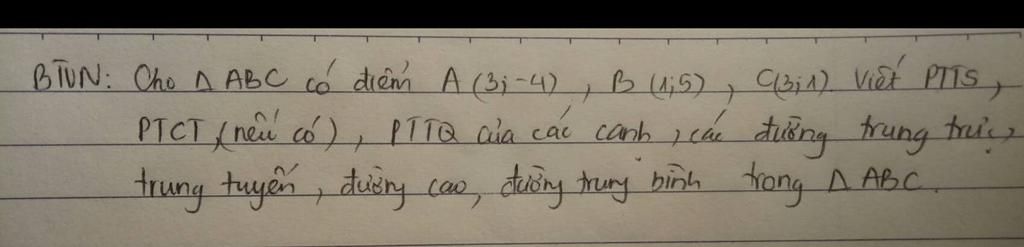 BTVN: Cho Δ ABC có điểm A (3; -4), B (1;5), C(3;1). Viết PTTS,
PTCT,(nếu có), PTTQ của các cạnh, các đường trung trực,
trung tuyến, đường cao, đường trung bình trong Δ ABC.